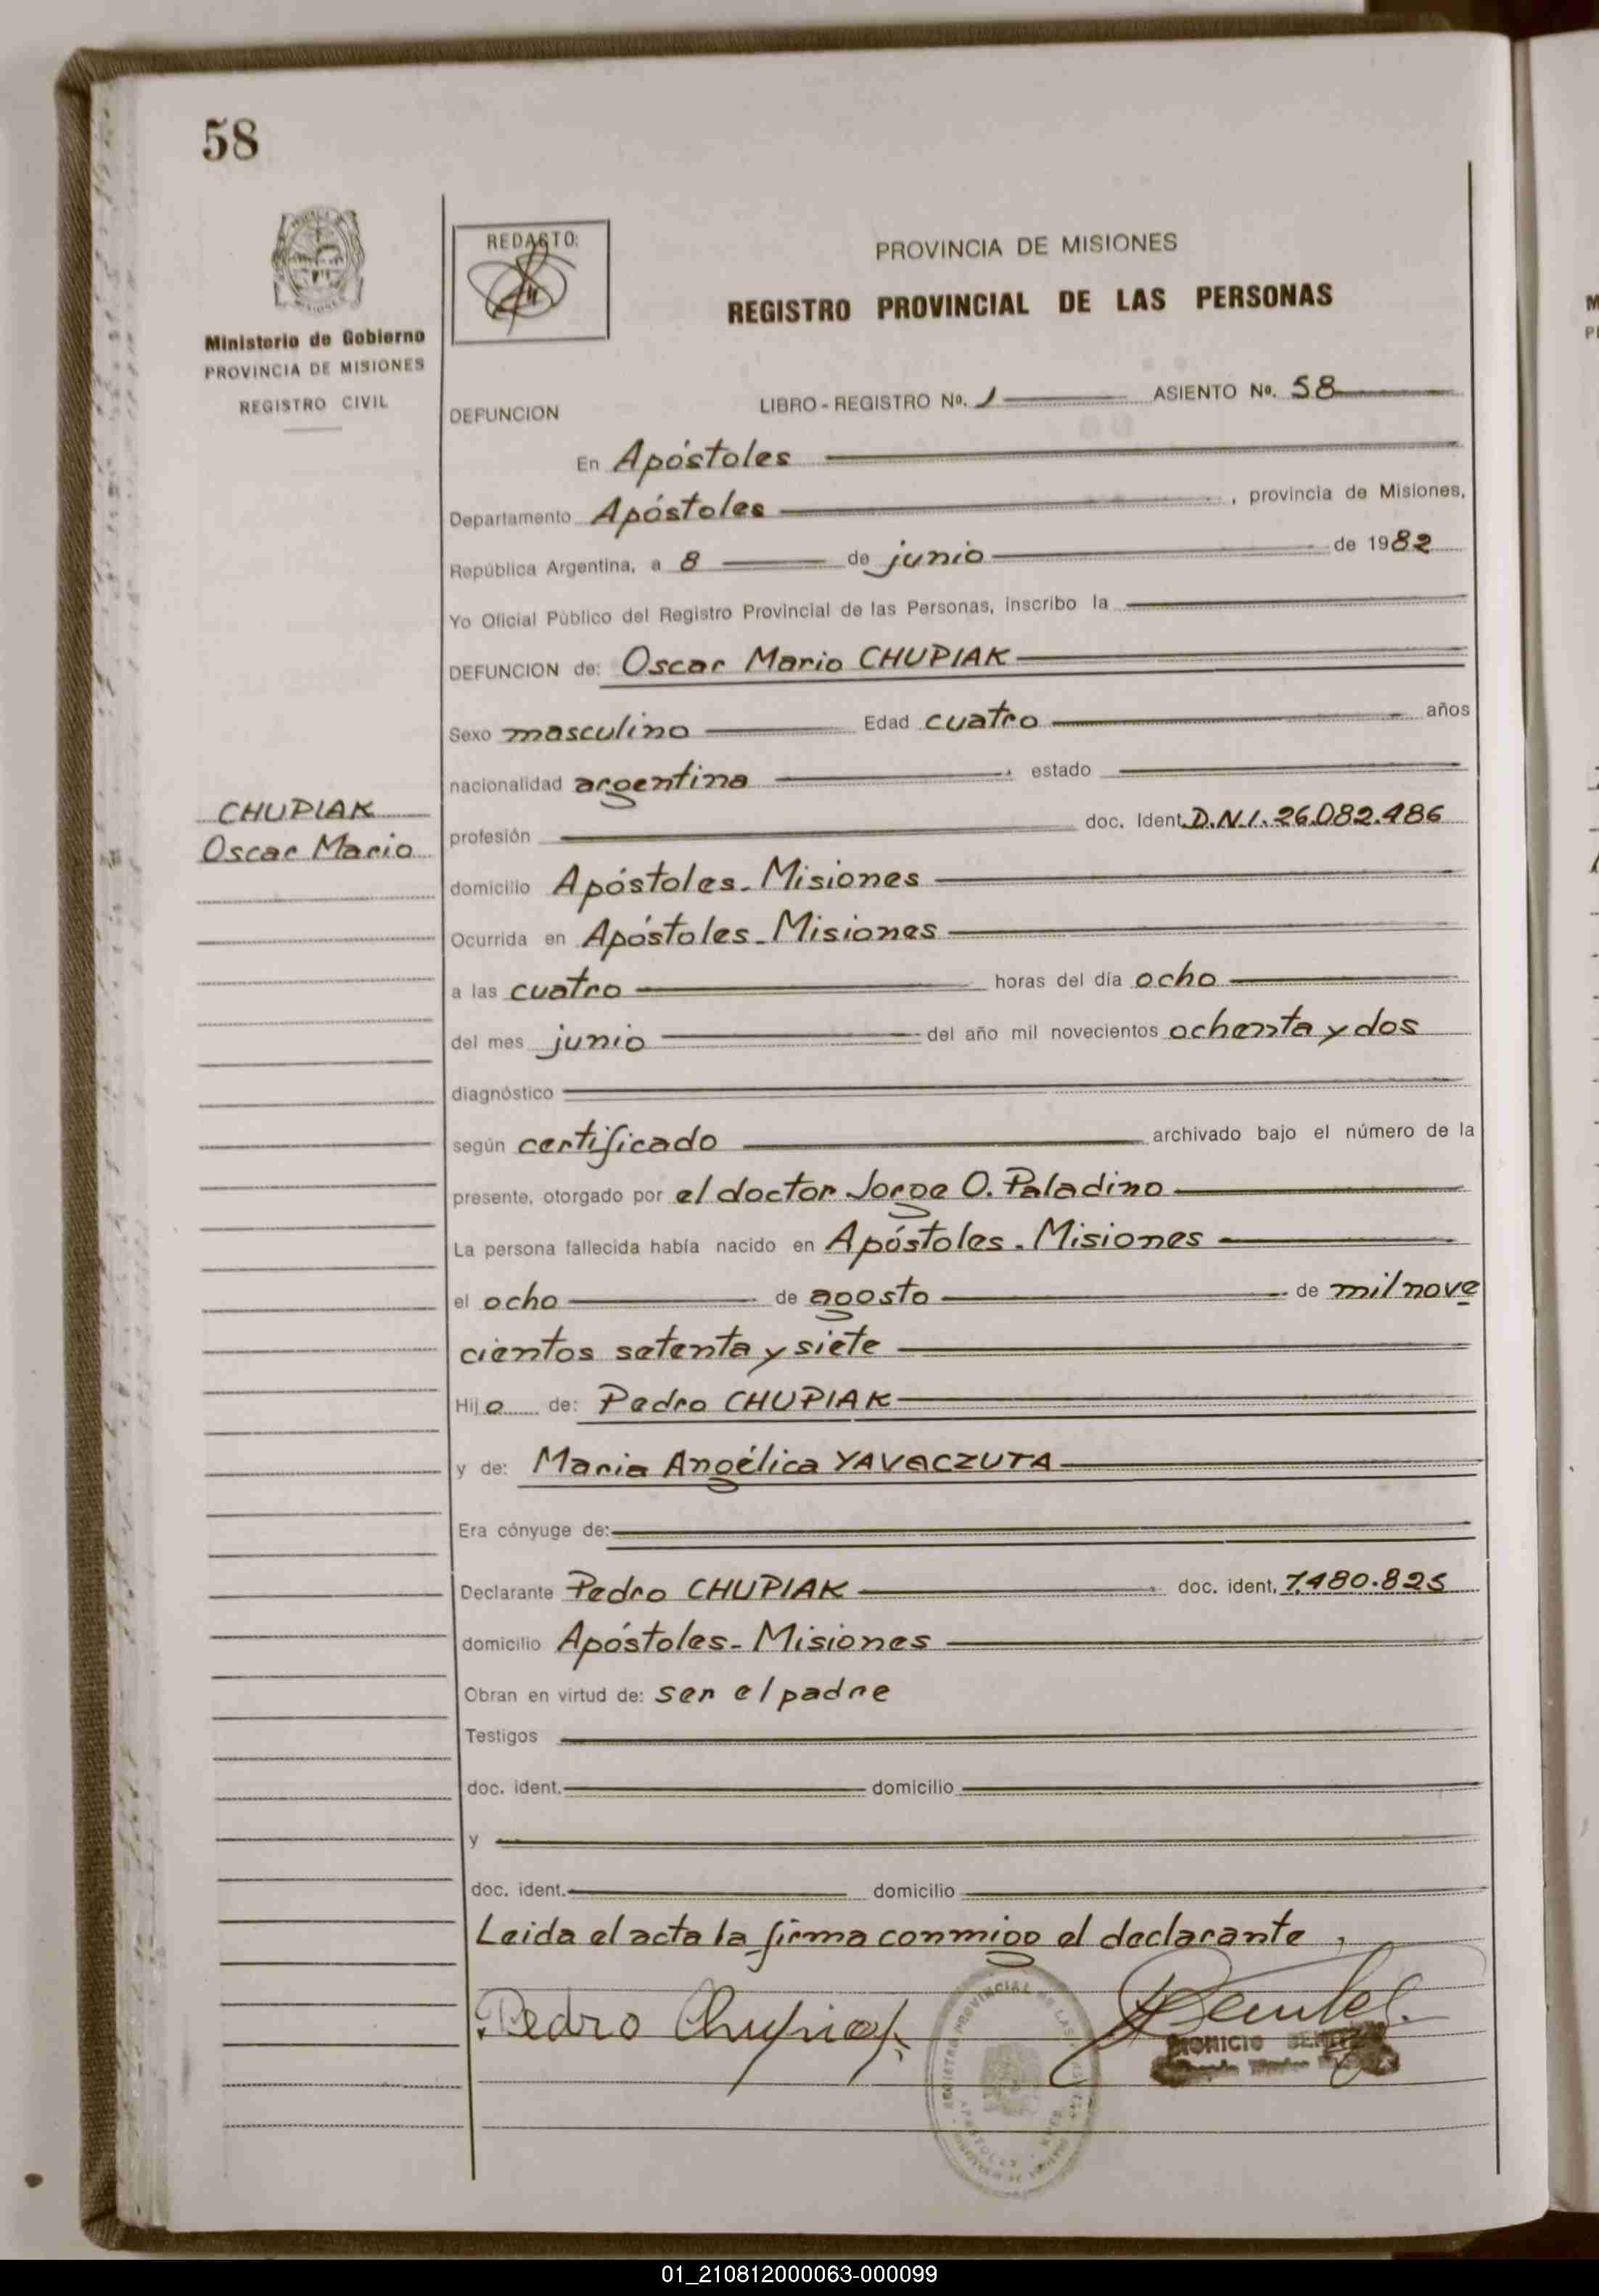 58
Ministerio de Gobierno
PROVINCIA DE MISIONES
REGISTRO CIVIL
REDACTO:
PROVINCIA DE MISIONES
REGISTRO PROVINCIAL DE LAS PERSONAS
DEFUNCION LIBRO - REGISTRO Nº. 1 ASIENTO Nº. 58
En Apóstoles
Departamento Apóstoles, provincia de Misiones,
República Argentina, a 8 de junio de 1982
Yo Oficial Público del Registro Provincial de las Personas, inscribo la
DEFUNCION de: Oscar Mario CHUPIAK
Sexo masculino Edad cuatro años
nacionalidad argentina estado
CHUPIAK
Oscar Mario
profesión doc. Ident. D.N.I. 26.082.486
domicilio Apóstoles - Misiones
Ocurrida en Apóstoles - Misiones
a las cuatro horas del día ocho
del mes junio del año mil novecientos ochenta y dos
diagnóstico
según certificado archivado bajo el número de la
presente, otorgado por el doctor Jorge O. Paladino
La persona fallecida había nacido en Apóstoles - Misiones
el ocho de agosto de mil nove
cientos setenta y siete
Hijo de: Pedro CHUPIAK
y de: Maria Angélica YAVACZUTA
Era cónyuge de:
Declarante Pedro CHUPIAK doc. ident. 7.480.825
domicilio Apóstoles - Misiones
Obran en virtud de: ser el padre
Testigos
doc. ident. domicilio
y
doc. ident. domicilio
Leida el acta la firma conmigo el declarante,
Pedro Chupiak
DIONICIO
01_210812000063-000099